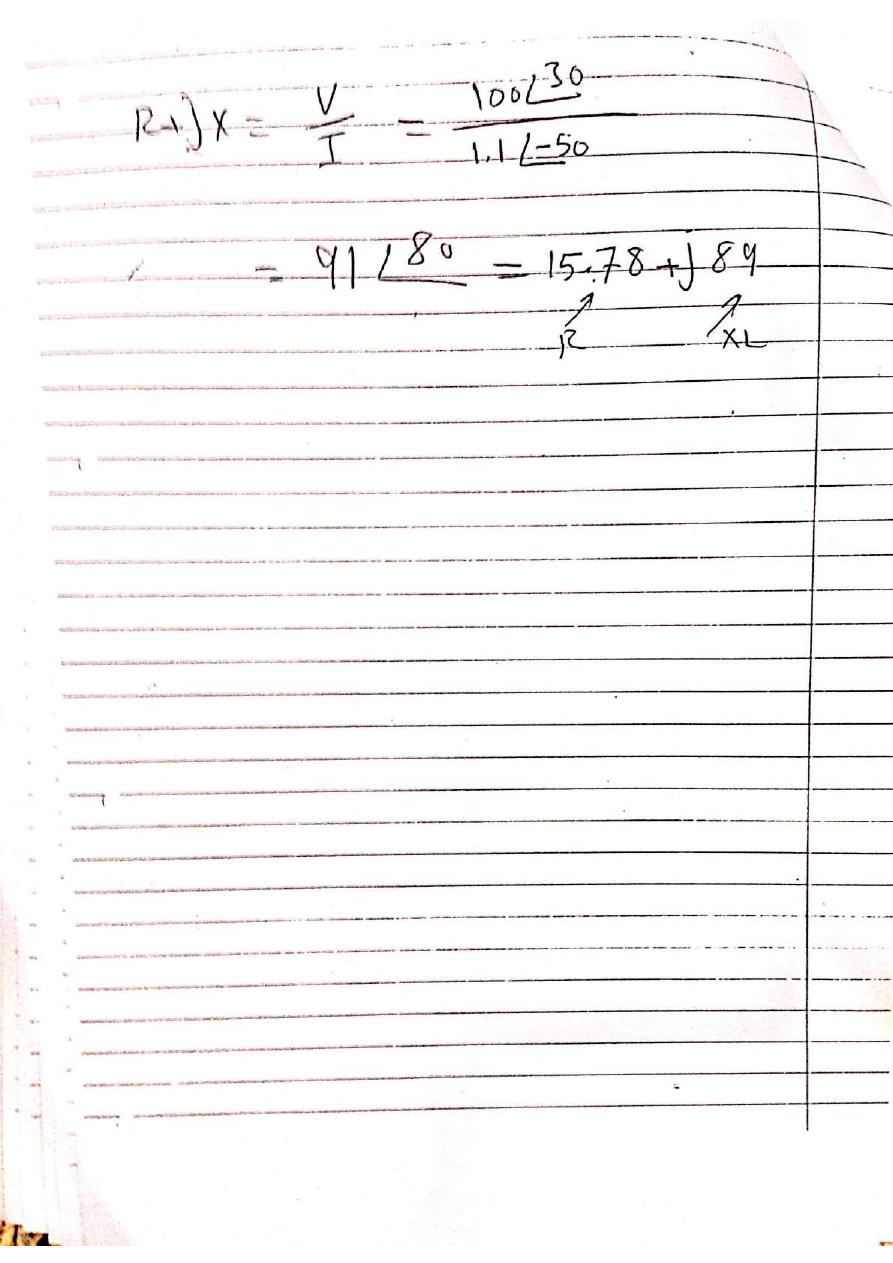 R+jX = V/I = 100∠30 / 1.1∠-50
= 91∠80 = 15.78 + j 89
R XL